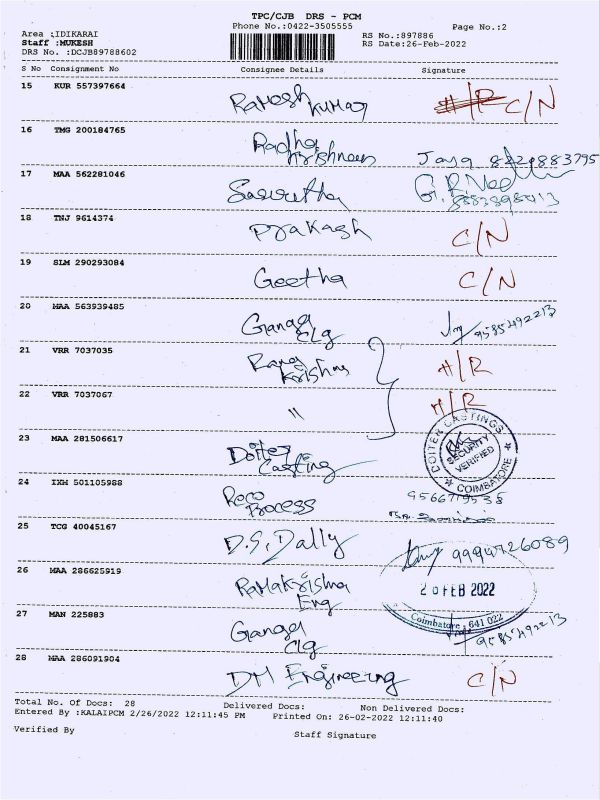 TPC/CJB DRS - PCM
Phone No.:0422-3505555 Page No.:2
Area :IDIKARAI RS No.:897886
Staff :MUKESH RS Date:26-Feb-2022
DRS No. :DCJB89788602
S No Consignment No Consignee Details Signature
15 KUR 557397664 Ramesh Kumar H/R C/N
16 TMG 200184765 Radha Krishnan Jaya 8220883795
17 MAA 562281046
18 TNJ 9614374 Prakash C/N
19 SLM 290293084 Geetha C/N
20 MAA 563939485 Ganga Clg 9585492213
21 VRR 7037035 Rama Krishna H/R
22 VRR 7037067 " H/R
23 MAA 281506617 Doiter Casting DOITER CASTINGS SECURITY VERIFIED COIMBATORE
24 IXH 501105988 Roco Process
25 TCG 40045167 D.S. Dally 9994726089
26 MAA 286625919 Ramakrishna Eng 26 FEB 2022
27 MAN 225883 Ganga Clg Coimbatore - 641 022 9585492213
28 MAA 286091904 DM Engineering C/N
Total No. Of Docs: 28 Delivered Docs: Non Delivered Docs:
Entered By :KALAIPCM 2/26/2022 12:11:45 PM Printed On: 26-02-2022 12:11:40
Verified By Staff Signature